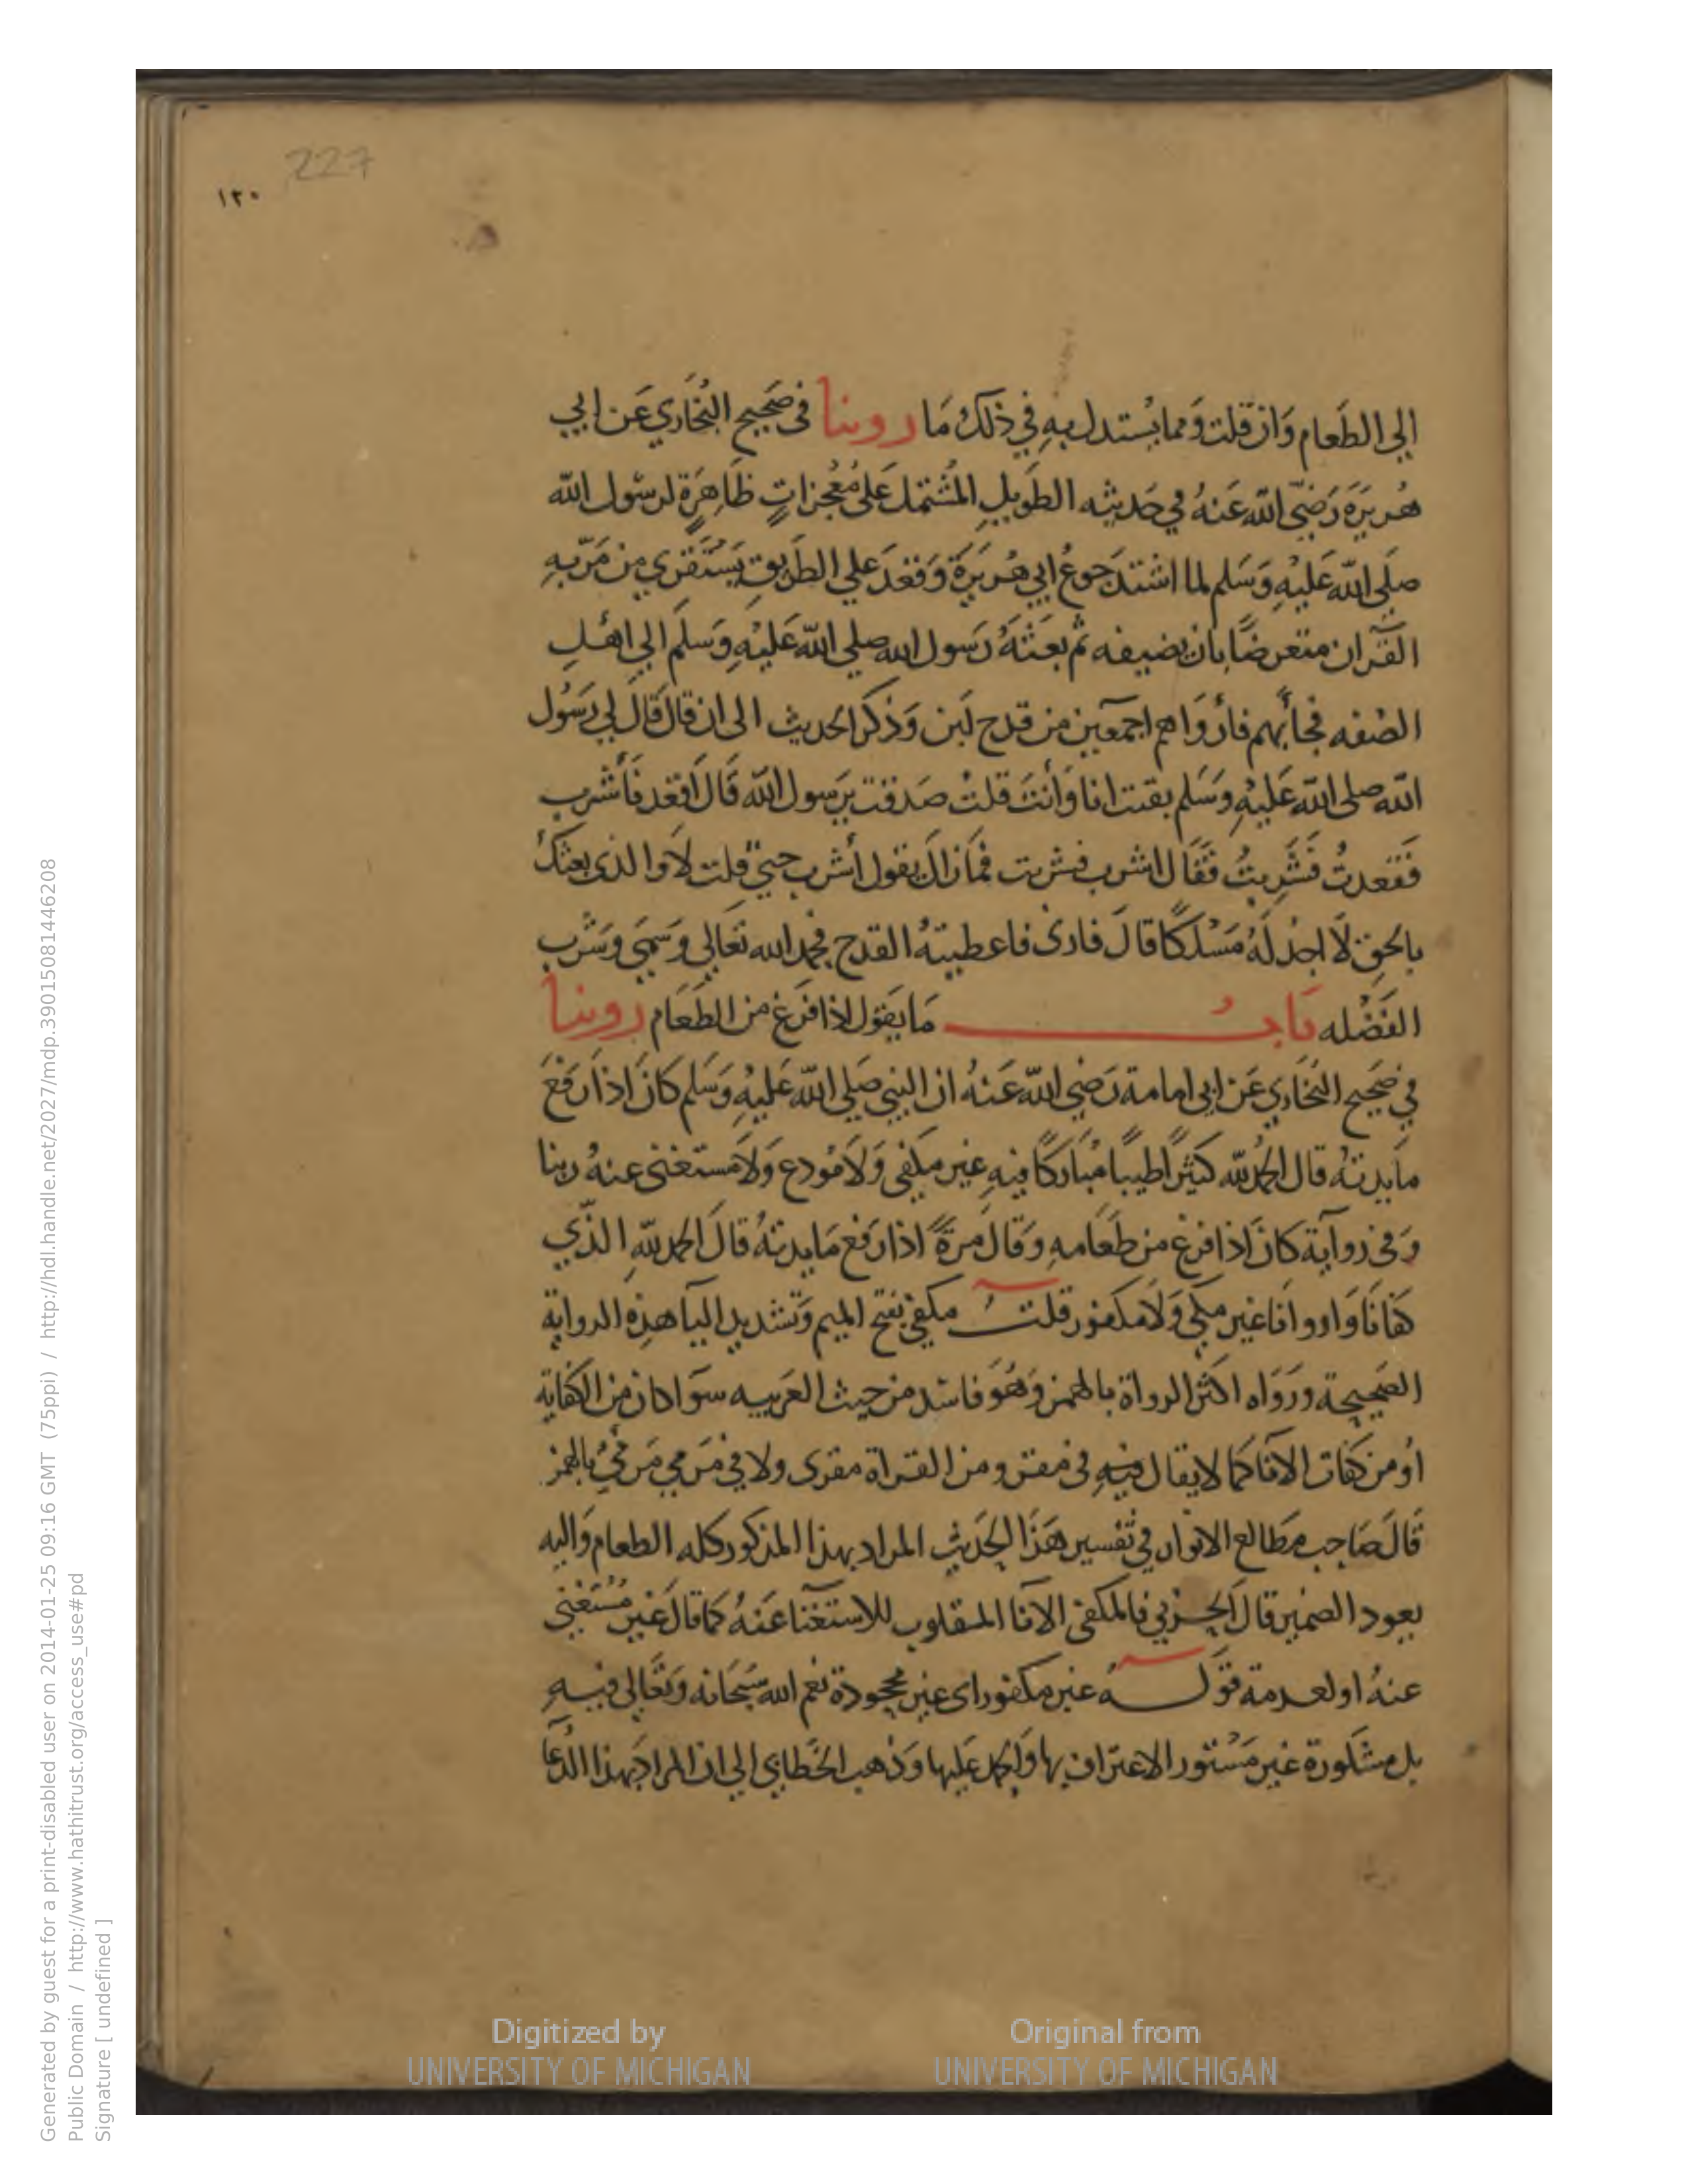 227
١٢٠
الى الطَعام وَان قلت وَمما يُستدل بهِ في ذلكَ مَا روينا في صَحِيح البُخَاري عَن ابي
هُريَرَة رَضيَ الله عَنهُ في حَديثه الطَويلِ المُشتمل عَلى مُعْجزاتٍ ظَاهِرَةٍ لرسُول الله
صلى الله عَليْهِ وَسَلم لما اشتدَ جوعُ ابي هُريَرَة وَقعَدَ علي الطَريق يَسْتَقري من مَرّ بهِ
القرآن متعرضًا بان يضيفه ثم بعَثَهُ رَسول الله صلي الله عَليْهِ وَسَلم الي اهل
الصُفه فجأبهم فأروَاهم اجمعَين من قدح لبَن وَذكر الحديث الى ان قال قَالَ لي رَسُول
الله صلى الله عَليْهِ وَسَلم بقيت انا وَأنتَ قلتُ صَدقت يرَسول الله قَالَ اقعُد فأشرب
فقعدتُ فشَربتُ فقَال اشرب فشربت فمَا زالَ يقول أشرب حتي قلت لاَ وَالذى بعثكَ
بالحق لاَ اجدُ لهُ مَسْلكًا قالَ فارنى فاعطيتهُ القدح فحمد الله تعَالي وَسَمَى وَشرب
الفَضْله بَابُ مَا يَقول اذا فرَغ من الطَعَام روينا
في صَحِيح البُخَاري عَن ابى امامة رَضي الله عَنهُ ان النبي صَلي الله عَليْهِ وَسَلم كانَ اذا رَفعَ
مايدتهُ قال الحمد لله كثيرًا طيبًا مُبَاركًا فيهِ غير مكفي وَلاَ مُودع وَلاَ مستغنى عنهُ ربنا
وَفي روَايَة كانَ اذا فرغ من طعَامهِ وَقالَ مَرةً اذا رَفع مَايدتهُ قالَ الحمد للهِ الذَي
كفانَا وَاروانَا غير مكفي وَلاَ مكفور قلتُ مكفي بفتح الميم وَتشديد اليآ هذه الرواية
الصَحيحة وَرَوَاه اكثر الرواة بالهمز وَهُوَ فاسَد من حيث العَربيه سوَا كان من الكفاية
اوْ من كفات الانَآ كما لا يقال فيهِ في مقرو من القرآة مقرى ولا في مَرمي مَرمئُ بالهمز
قَالَ صَاحِب مطَالع الانوار في تفسير هَذَا الحدَيث المراد بهذا المذكور كله الطعام وَاليه
يعود الضمير قالَ الحَربي فالمكفى الانآ المقلوب للاستغنآ عَنهُ كما قالَ غير مُستغنى
عنهُ او لعدمة قوَلهُ غير مكفور اى غير مجحودة نعم الله سُبحَانه وَتعَالي فيهِ
بل مشكورة غير مَسْتور الاعتراف بها وَالحمد عَليها وَذهب الخَطابي الي ان المراد بهَذا الدُعآ
Digitized by
UNIVERSITY OF MICHIGAN
Original from
UNIVERSITY OF MICHIGAN
Generated by guest for a print-disabled user on 2014-01-25 09:16 GMT (75ppi) / http://hdl.handle.net/2027/mdp.39015081446208
Public Domain / http://www.hathitrust.org/access_use#pd
Signature [ undefined ]